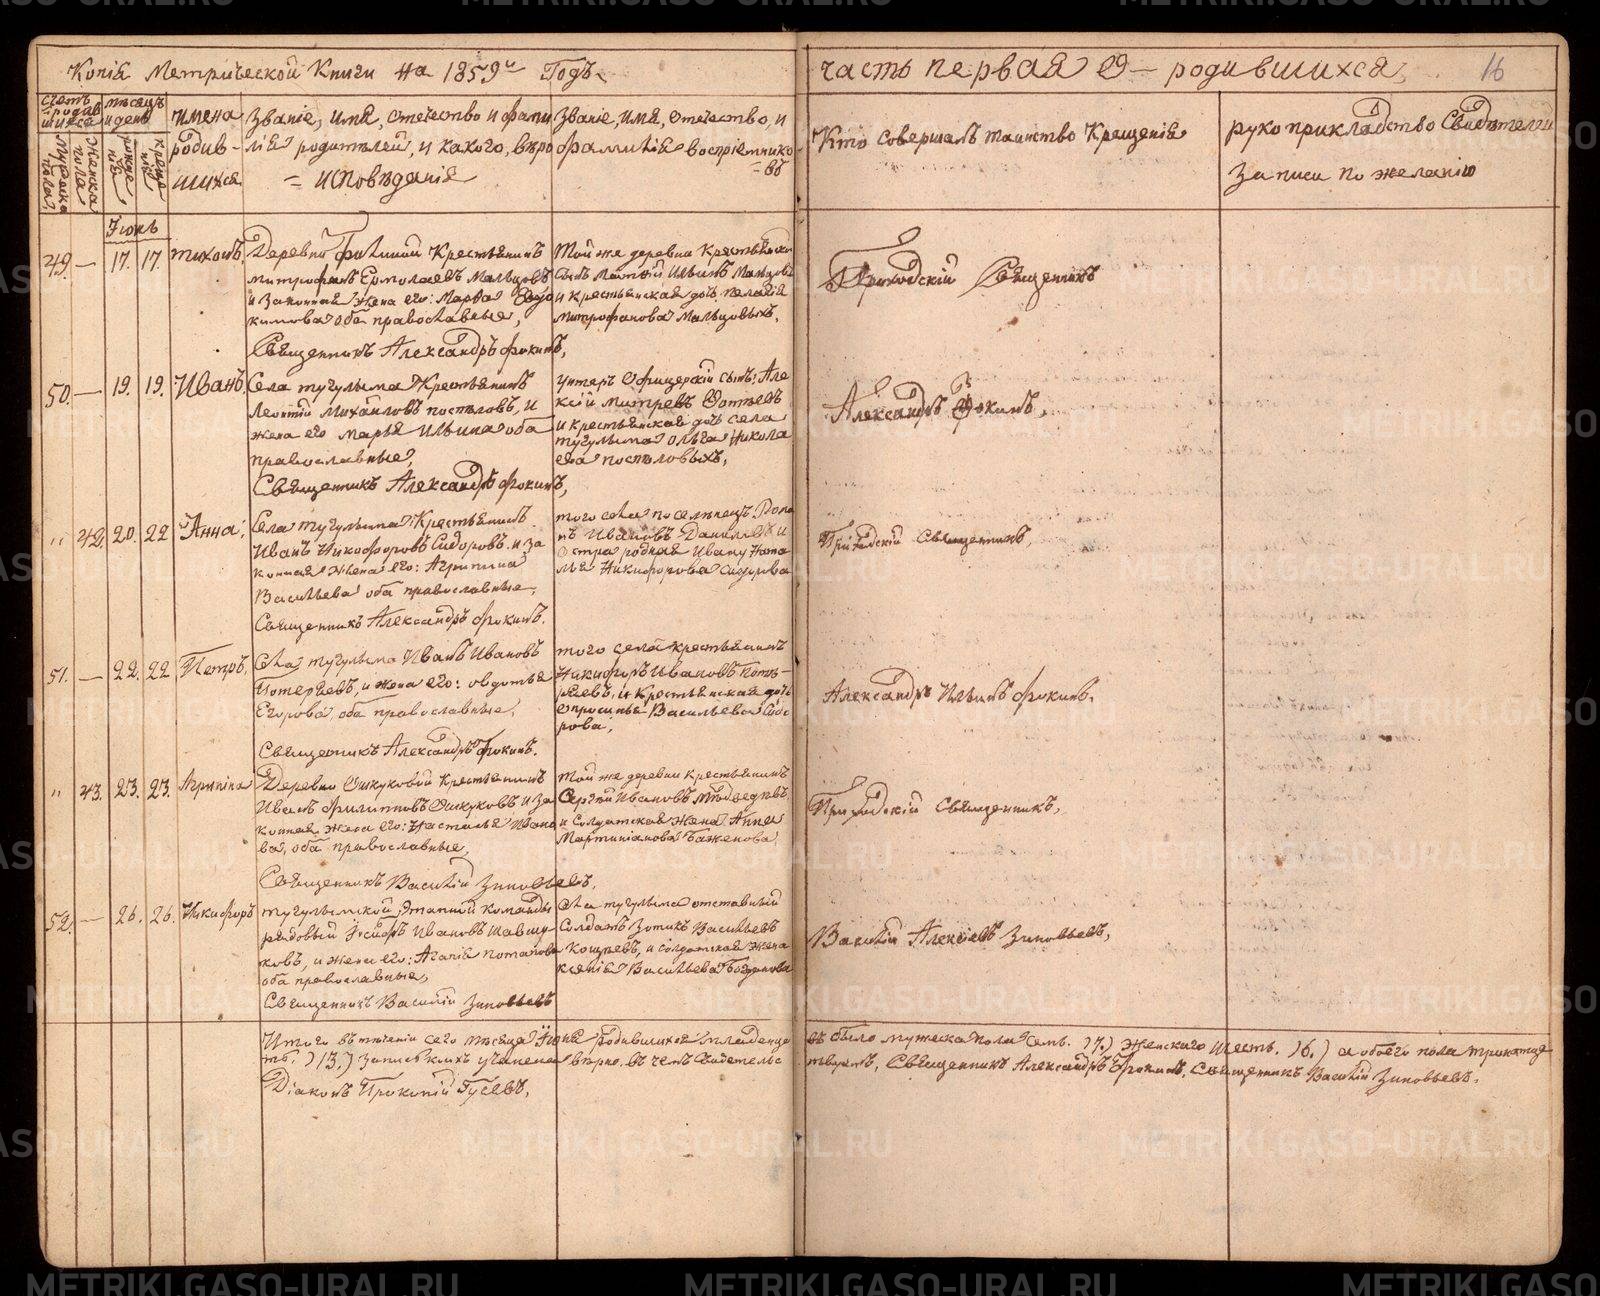 Копія Метрической Книги на 1859й Годъ
часть первая о родившихся
16
счетъ родившихся
мѣсяцъ и день
мужеска пола
женска пола
рожденія
крещенія
имена родив-
шихся
Званіе, имя, отечество и фами
лія родителей, и какого, вѣро
= исповѣданія
Званіе, имя, отечество, и
фамилія воспріемнико
=въ
Кто совершалъ таинство Крещенія
рукоприкладство Свидѣтелей
Записи по желанію
Іюнь
49. — 17. 17. Тихонъ.
Деревни Крестьянинъ
митрофанъ Ермолаевъ Мальцовъ
и Законная жена его: Марѳа Евдо
кимова оба православные,
Священникъ Александръ Фокинъ,
Той же деревни Крестьянско
сынъ Ильинъ Мальцовъ
и крестьянская дочь Пелагія
Митрофанова Мальцовыхъ.
Приходскій Священникъ
50. — 19. 19. Иванъ.
Села тугулыма Крестьянинъ
Леонтій Михаиловъ поспѣловъ, и
жена его Марья Ильина оба
православные,
Священникъ Александръ Фокинъ,
Унтеръ Офицерскій сынъ: Але
ксій митревъ
и крестьянская дочь села
тугулыма Ольга Никола
ева поспѣловыхъ,
Александръ Фокинъ,
" 42. 20. 22 Анна,
Села тугулыма Крестьянинъ
Иванъ Никофоровъ Сидоровъ и за
конная жена его: Агрипина
Васильева оба православные,
Священникъ Александръ Фокинъ.
того села поселенецъ
Ивановъ Даниловъ и
сстра родная Ивану Ната
лья Никифорова Сидорова
Приходскій Священникъ,
51. — 22. 22 Петръ,
Села тугулыма Иванъ Ивановъ
Потеряевъ, и жена его: овдотья
Егорова, оба православные,
Священникъ Александръ Фокинъ.
того села крестьянинъ
Никифоръ Ивановъ Поте-
ряевъ, и Крестьянская дочь
Еѳросинья Васильева Сидо
рова,
Александръ Ильинъ Фокинъ.
" 43. 23. 23. Агрипина
Деревни Ошкуковой Крестьянинъ
Иванъ Филипповъ Ошкуковъ и за
конная жена его: Настасья Ивано
ва, оба православные,
Священникъ Василій Зиновьевъ,
Той же деревни крестьянинъ
Сергѣй Ивановъ Медведевъ,
и Солдатская жена Анна
Мартиніанова Баженова
Приходскій Священникъ,
52. — 26. 26. Никифоръ
тугулымской Этапной команды
рядовый Ивановъ
ковъ, и жена его: Агапія Потапова
оба православные,
Священникъ Василій Зиновьевъ
Села тугулыма отставный
Солдатъ Зотикъ Васильевъ
и солдатская жена
Ксенія Васильева Богданова
Василій Алексіевъ Зиновьевъ,
Итого въ теченіи сего мѣсяца Іюня родившихся младенце
въ было мужеска пола Семь. )7.) Женскаго Шесть. )6.) а обоего пола тринатце
ть. )13.) записка ихъ учинена вѣрно. въ чемъ Свидетельс
твуемъ, Священникъ Александръ Фокинъ, Священникъ Василій Зиновьевъ.
Діаконъ Прокопій Гусевъ,
METRIKI.GASO-URAL.RU